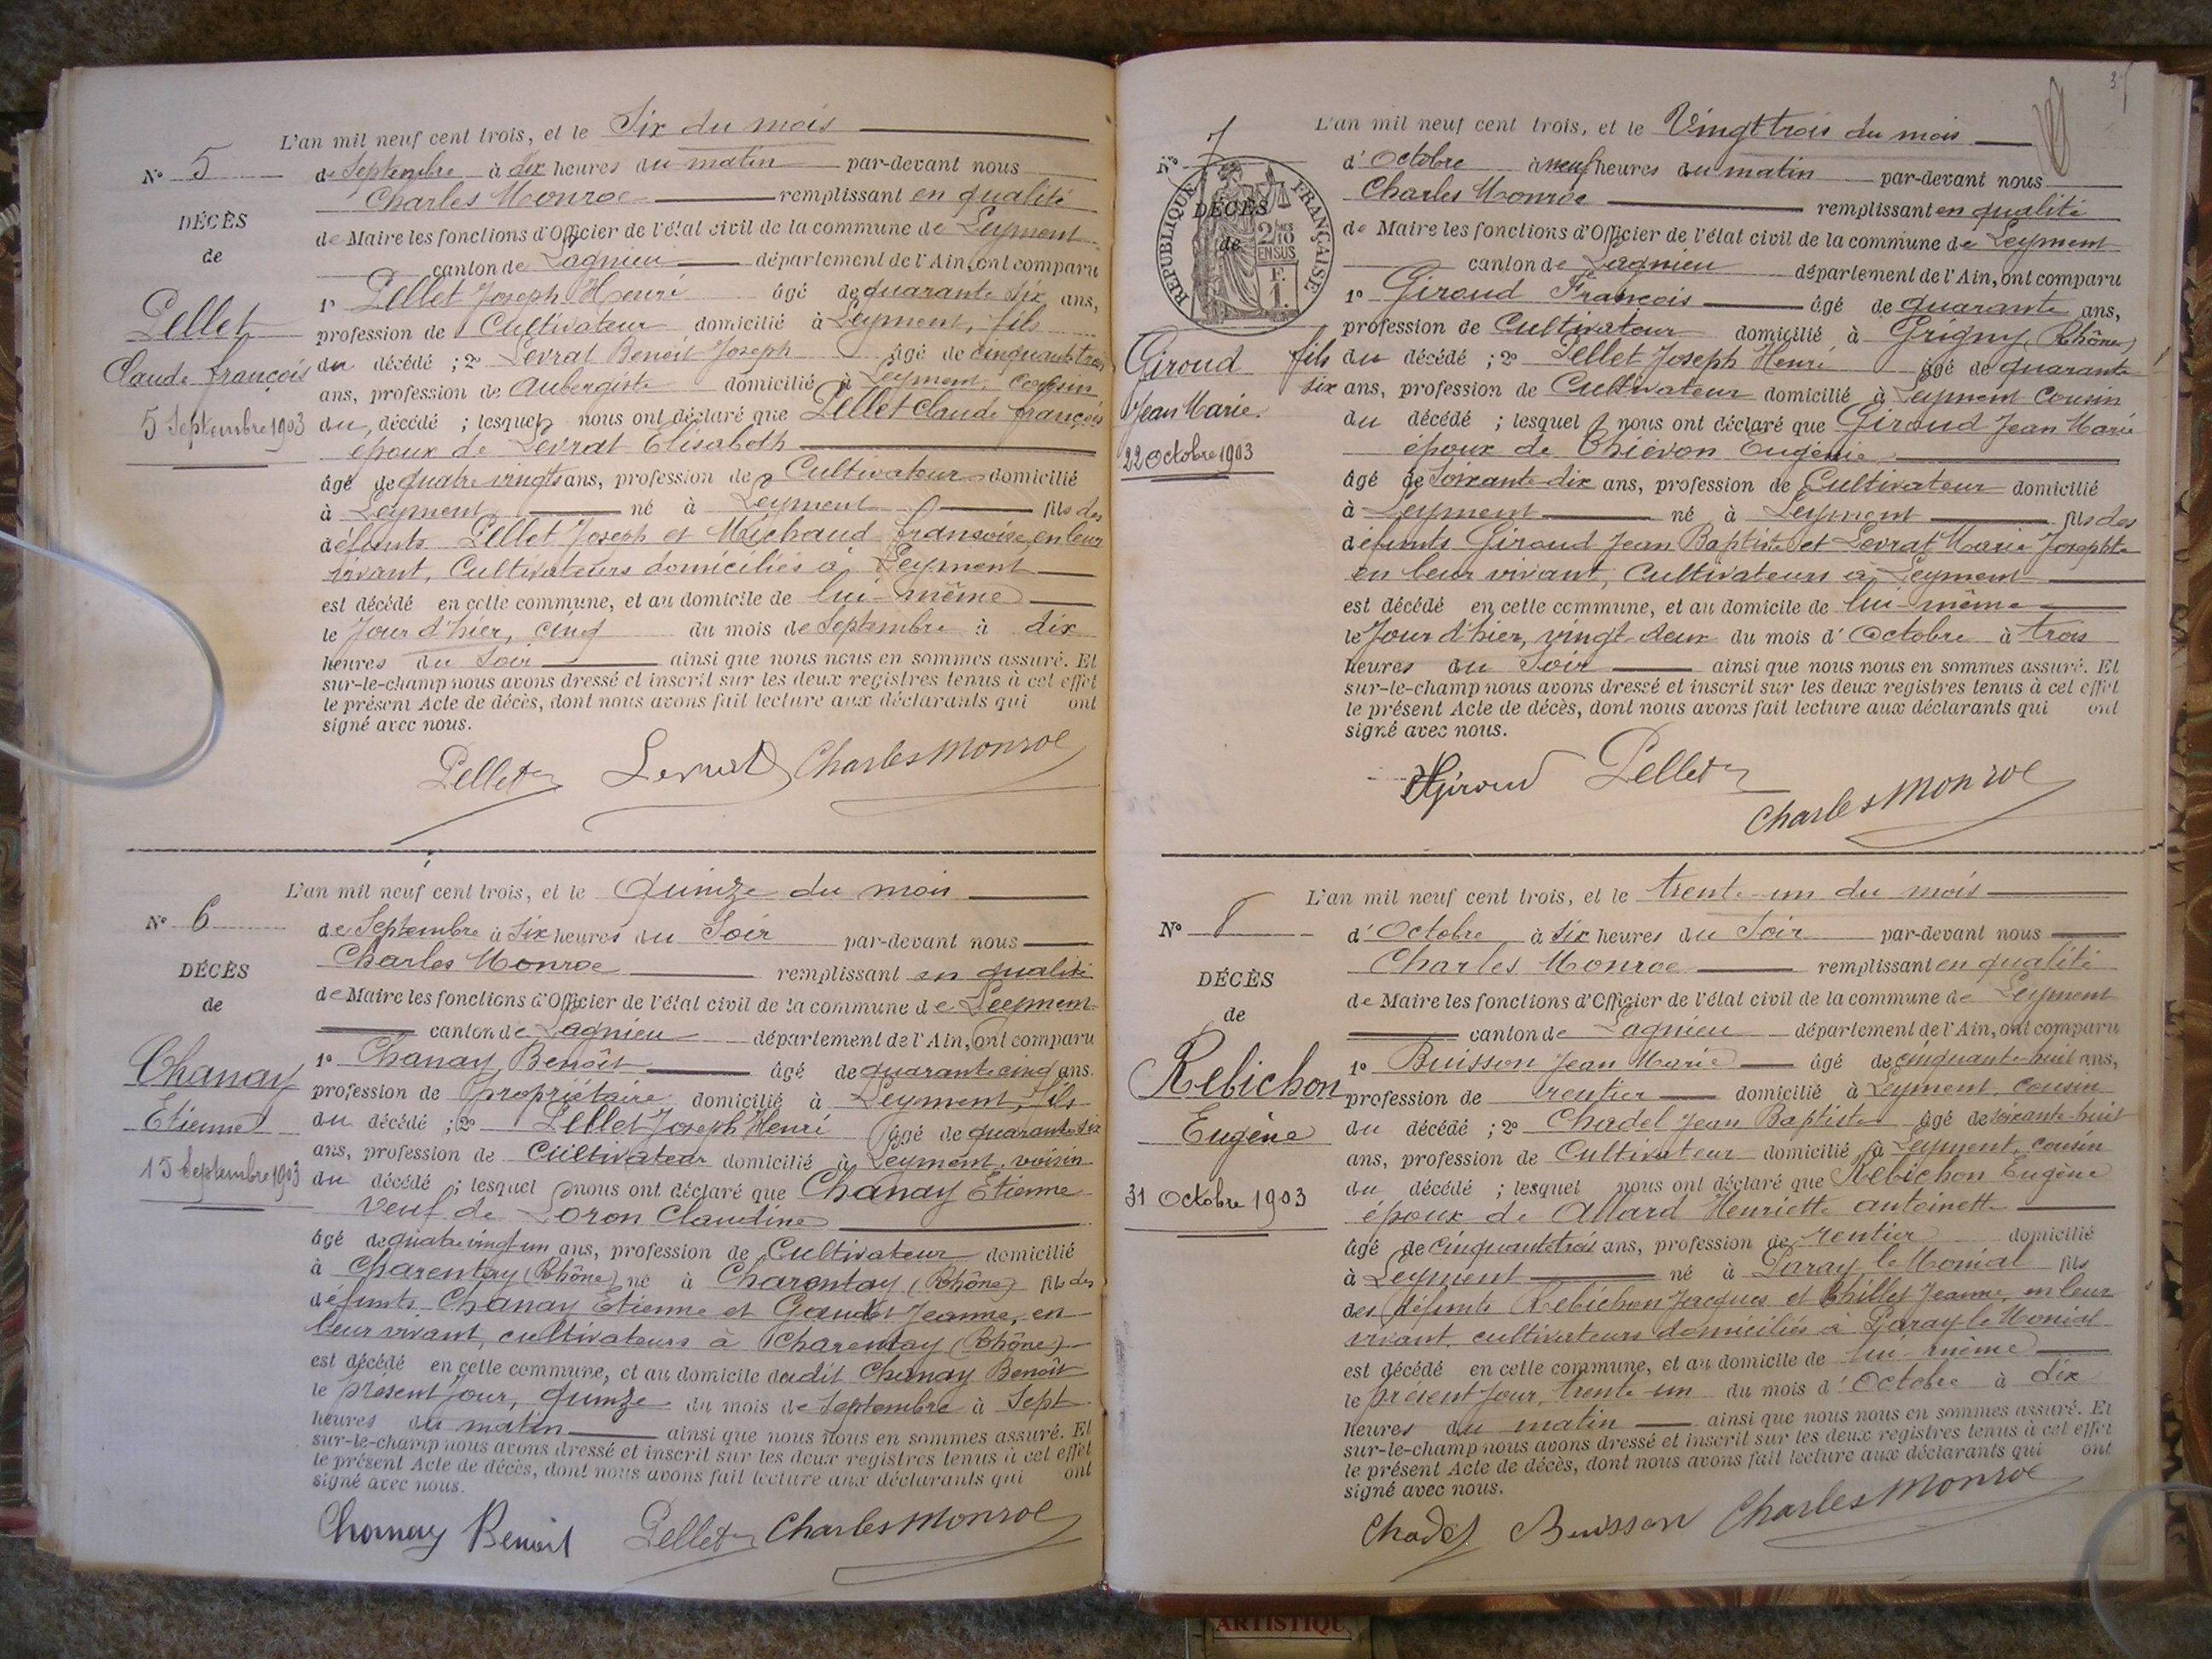 L'an mil neuf cent trois, et le Six du mois
N° 5
de Septembre à dix heures du matin par-devant nous
Charles Monroe remplissant en qualité
DÉCÈS
de Maire les fonctions d'Officier de l'état civil de la commune de Leyment
de
canton de Lagnieu département de l'Ain, ont comparu
1° Pellet Joseph Henri âgé de quarante six ans,
Pellet
profession de Cultivateur domicilié à Leyment, fils
Claude françois
du décédé ; 2° Levrat Benoit Joseph âgé de cinquante trois
ans, profession de Aubergiste domicilié à Leyment, cousin
5 Septembre 1903
du décédé ; lesquels nous ont déclaré que Pellet Claude françois
époux de Levrat Elisabeth
âgé de quatre vingts ans, profession de Cultivateur domicilié
à Leyment né à Leyment fils des
défunts Pellet Joseph et Michaud fransoise, en leur
vivant, Cultivateurs domiciliés à Leyment
est décédé en cette commune, et au domicile de lui-même
le Jour d'hier, cinq du mois de Septembre à dix
heures du Soir ainsi que nous nous en sommes assuré. Et
sur-le-champ nous avons dressé et inscrit sur les deux registres tenus à cet effet
le présent Acte de décès, dont nous avons fait lecture aux déclarants qui ont
signé avec nous.
Pellet Levrat Charles Monroe
L'an mil neuf cent trois, et le Quinze du mois
N° 6
de Septembre à Six heures du Soir par-devant nous
Charles Monroe remplissant en qualité
DÉCÈS
de Maire les fonctions d'Officier de l'état civil de la commune de Leyment
de
canton de Lagnieu département de l'Ain, ont comparu
Chanay
1° Chanay Benoît âgé de quarante cinq ans.
profession de propriétaire domicilié à Leyment, fils
Etienne
du décédé ; 2° Pellet Joseph Henri âgé de quarante six
ans, profession de Cultivateur domicilié à Leyment, voisin
15 Septembre 1903
du décédé ; lesquel nous ont déclaré que Chanay Etienne
veuf de Loron Claudine
âgé de quatre vingt un ans, profession de Cultivateur domicilié
à Charentay (Rhône) né à Charentay (Rhône) fils des
défunts Chanay Etienne et Gaudet Jeanne, en
leur vivant, cultivateurs à Charentay (Rhône)
est décédé en cette commune, et au domicile dudit Chanay Benoît
le présent Jour, quinze du mois de Septembre à Sept
heures du matin ainsi que nous nous en sommes assuré. Et
sur-le-champ nous avons dressé et inscrit sur les deux registres tenus à cet effet
le présent Acte de décès, dont nous avons fait lecture aux déclarants qui ont
signé avec nous.
Chanay Benoit Pellet Charles Monroe
L'an mil neuf cent trois, et le Vingt trois du mois
N° 7
d'Octobre à neuf heures du matin par-devant nous
Charles Monroe remplissant en qualité
RÉPUBLIQUE FRANÇAISE
2/10 EN SUS
F. 1.
DÉCÈS
de Maire les fonctions d'Officier de l'état civil de la commune de Leyment
de
canton de Lagnieu département de l'Ain, ont comparu
1° Giroud François âgé de quarante ans,
profession de Cultivateur domicilié à Grigny (Rhône)
Giroud
fils du décédé ; 2° Pellet Joseph Henri âgé de quarante
six ans, profession de Cultivateur domicilié à Leyment cousin
Jean Marie.
du décédé ; lesquel nous ont déclaré que Giroud Jean Marie
22 Octobre 1903
époux de Thiévon Eugénie
âgé de Soixante-dix ans, profession de Cultivateur domicilié
à Leyment né à Leyment fils des
défunts Giroud Jean Baptiste et Levrat Marie Josephte
en leur vivant, Cultivateurs à Leyment
est décédé en cette commune, et au domicile de lui-même
le Jour d'hier, vingt-deux du mois d'Octobre à trois
heures du Soir ainsi que nous nous en sommes assuré. Et
sur-le-champ nous avons dressé et inscrit sur les deux registres tenus à cet effet
le présent Acte de décès, dont nous avons fait lecture aux déclarants qui ont
signé avec nous.
Giroud Pellet
Charles Monroe
L'an mil neuf cent trois, et le trente-un du mois
N° 8
d'Octobre à six heures du Soir par-devant nous
Charles Monroe remplissant en qualité
DÉCÈS
de Maire les fonctions d'Officier de l'état civil de la commune de Leyment
de
canton de Lagnieu département de l'Ain, ont comparu
Rebichon
1° Buisson Jean Marie âgé de cinquante-huit ans,
profession de rentier domicilié à Leyment, cousin
Eugène
du décédé ; 2° Chadel Jean Baptiste âgé de soixante-huit
ans, profession de Cultivateur domicilié à Leyment, cousin
31 Octobre 1903
du décédé ; lesquel nous ont déclaré que Rebichon Eugène
époux de Allard Henriette antoinette
âgé de Cinquante trois ans, profession de rentier domicilié
à Leyment né à Paray le Monial fils
des défunts Rebichon Jacques et Thillet Jeanne, en leur
vivant, cultivateurs domiciliés à Paray le Monial
est décédé en cette commune, et au domicile de lui-même
le présent Jour, trente-un du mois d'Octobre à dix
heures du matin ainsi que nous nous en sommes assuré. Et
sur-le-champ nous avons dressé et inscrit sur les deux registres tenus à cet effet
le présent Acte de décès, dont nous avons fait lecture aux déclarants qui ont
signé avec nous.
Chadel Buisson Charles Monroe
ARTISTIQU